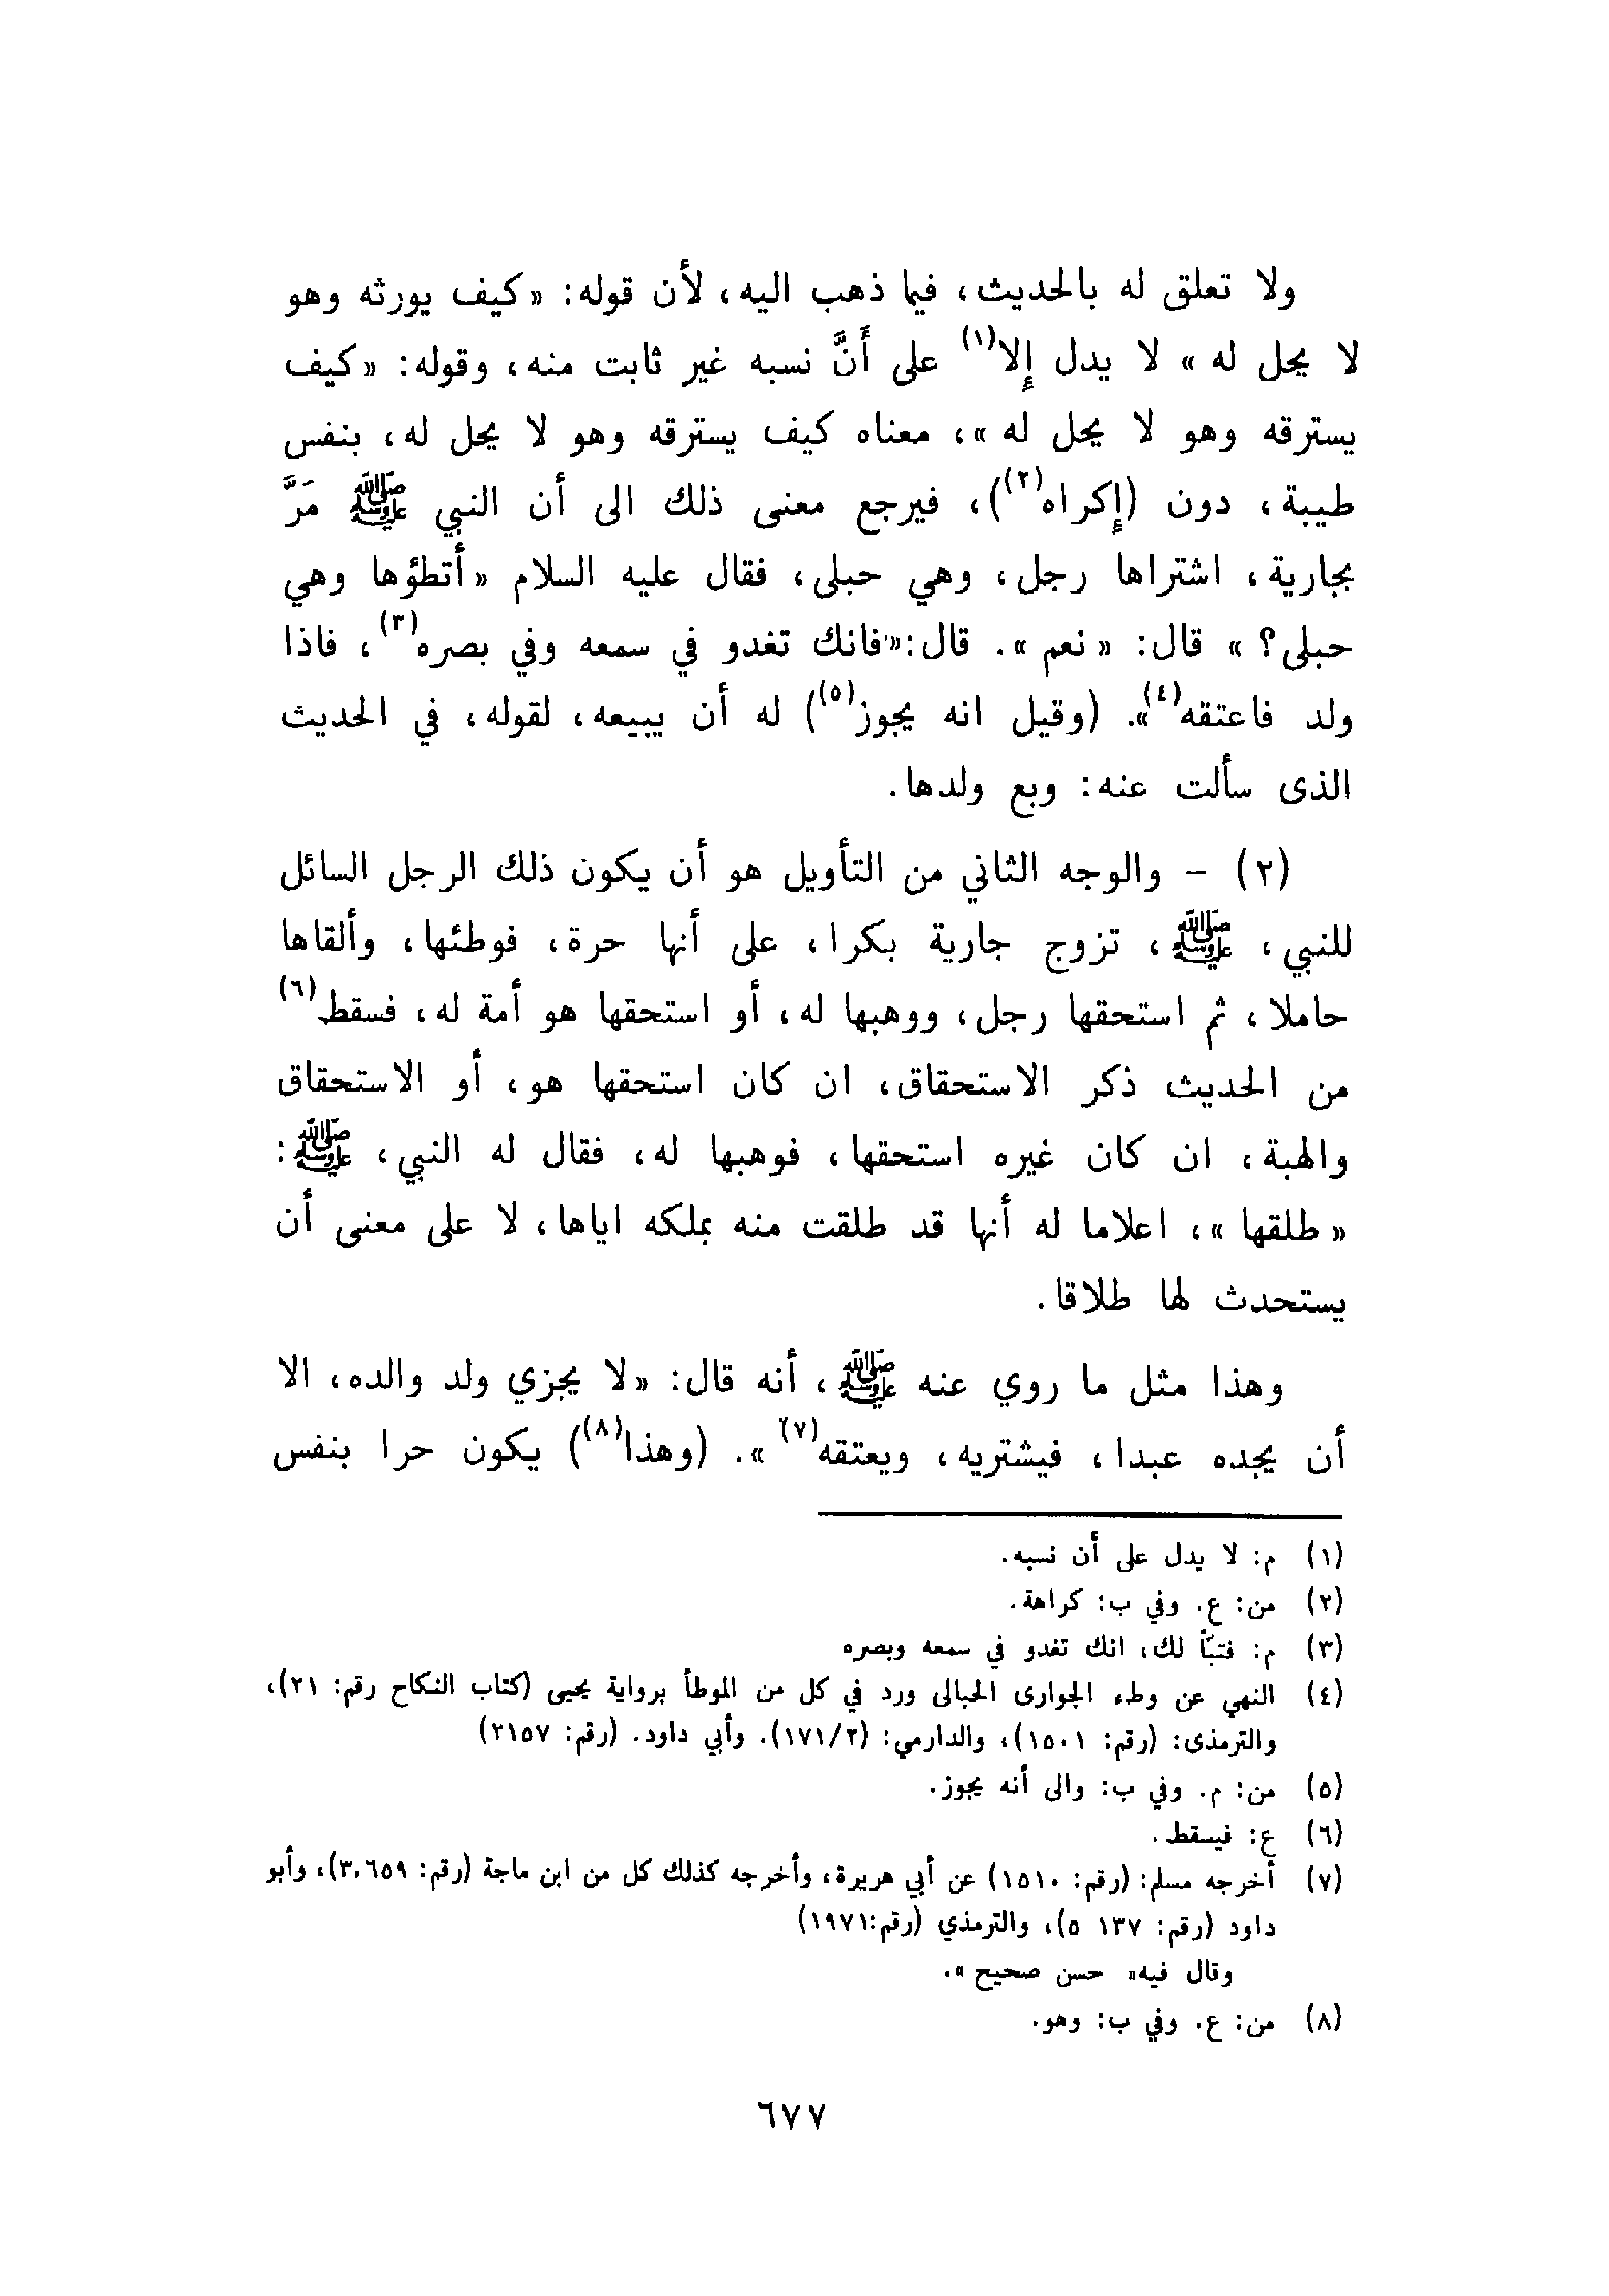 ولا تعلق له بالحديث، فيما ذهب اليه، لأن قوله: «كيف يورثه وهو
لا يحل له» لا يدل إلا(١) على أَنَّ نسبه غير ثابت منه، وقوله: «كيف
يسترقه وهو لا يحل له»، معناه كيف يسترقه وهو لا يحل له، بنفس
طيبة، دون (إكراه(٢))، فيرجع معنى ذلك الى أن النبي ﷺ مَرَّ
بجارية، اشتراها رجل، وهي حبلى، فقال عليه السلام «أتطؤها وهي
حبلى؟» قال: «نعم». قال: «فانك تغدو في سمعه وفي بصره(٣)، فاذا
ولد فاعتقه(٤)». (وقيل انه يجوز(٥)) له أن يبيعه، لقوله، في الحديث
الذى سألت عنه: وبع ولدها.
(٢) - والوجه الثاني من التأويل هو أن يكون ذلك الرجل السائل
للنبي، ﷺ، تزوج جارية بكرا، على أنها حرة، فوطئها، وألقاها
حاملا، ثم استحقها رجل، ووهبها له، أو استحقها هو أمة له، فسقط(٦)
من الحديث ذكر الاستحقاق، ان كان استحقها هو، أو الاستحقاق
والهبة، ان كان غيره استحقها، فوهبها له، فقال له النبي، ﷺ:
«طلقها»، اعلاما له أنها قد طلقت منه بملكه اياها، لا على معنى أن
يستحدث لها طلاقا.
وهذا مثل ما روي عنه ﷺ، أنه قال: «لا يجزي ولد والده، الا
أن يجده عبدا، فيشتريه، ويعتقه(٧)». (وهذا(٨)) يكون حرا بنفس
(١) م: لا يدل على أن نسبه.
(٢) من: ع. وفي ب: كراهة.
(٣) م: فتبّاً لك، انك تغدو في سمعه وبصره
(٤) النهي عن وطء الجوارى الحبالى ورد في كل من الموطأ برواية يحيى (كتاب النكاح رقم: ٢١)،
والترمذى: (رقم: ١٥٠١)، والدارمي: (١٧١/٢). وأبي داود. (رقم: ٢١٥٧)
(٥) من: م. وفي ب: والى أنه يجوز.
(٦) ع: فيسقط.
(٧) أخرجه مسلم: (رقم: ١٥١٠) عن أبي هريرة، وأخرجه كذلك كل من ابن ماجة (رقم: ٣,٦٥٩)، وأبو
داود (رقم: ١٣٧ ٥)، والترمذي (رقم:١٩٧١)
وقال فيه« حسن صحيح».
(٨) من: ع. وفي ب: وهو.
٦٧٧